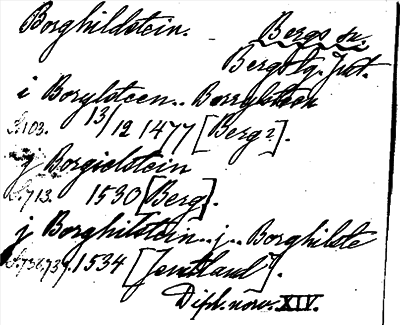 Borghildstein. - Bergs sn.
Bergs tg. Jmt.
i Borglsteen.. Borrylsteen
S.103. 13/12 1477 [Berg?].
j Borgielstein
S.713. 1530 [Berg].
j Borghilstein..j.. Borghilste
1534 [Jemtland].
Dipl. norv. XIV.